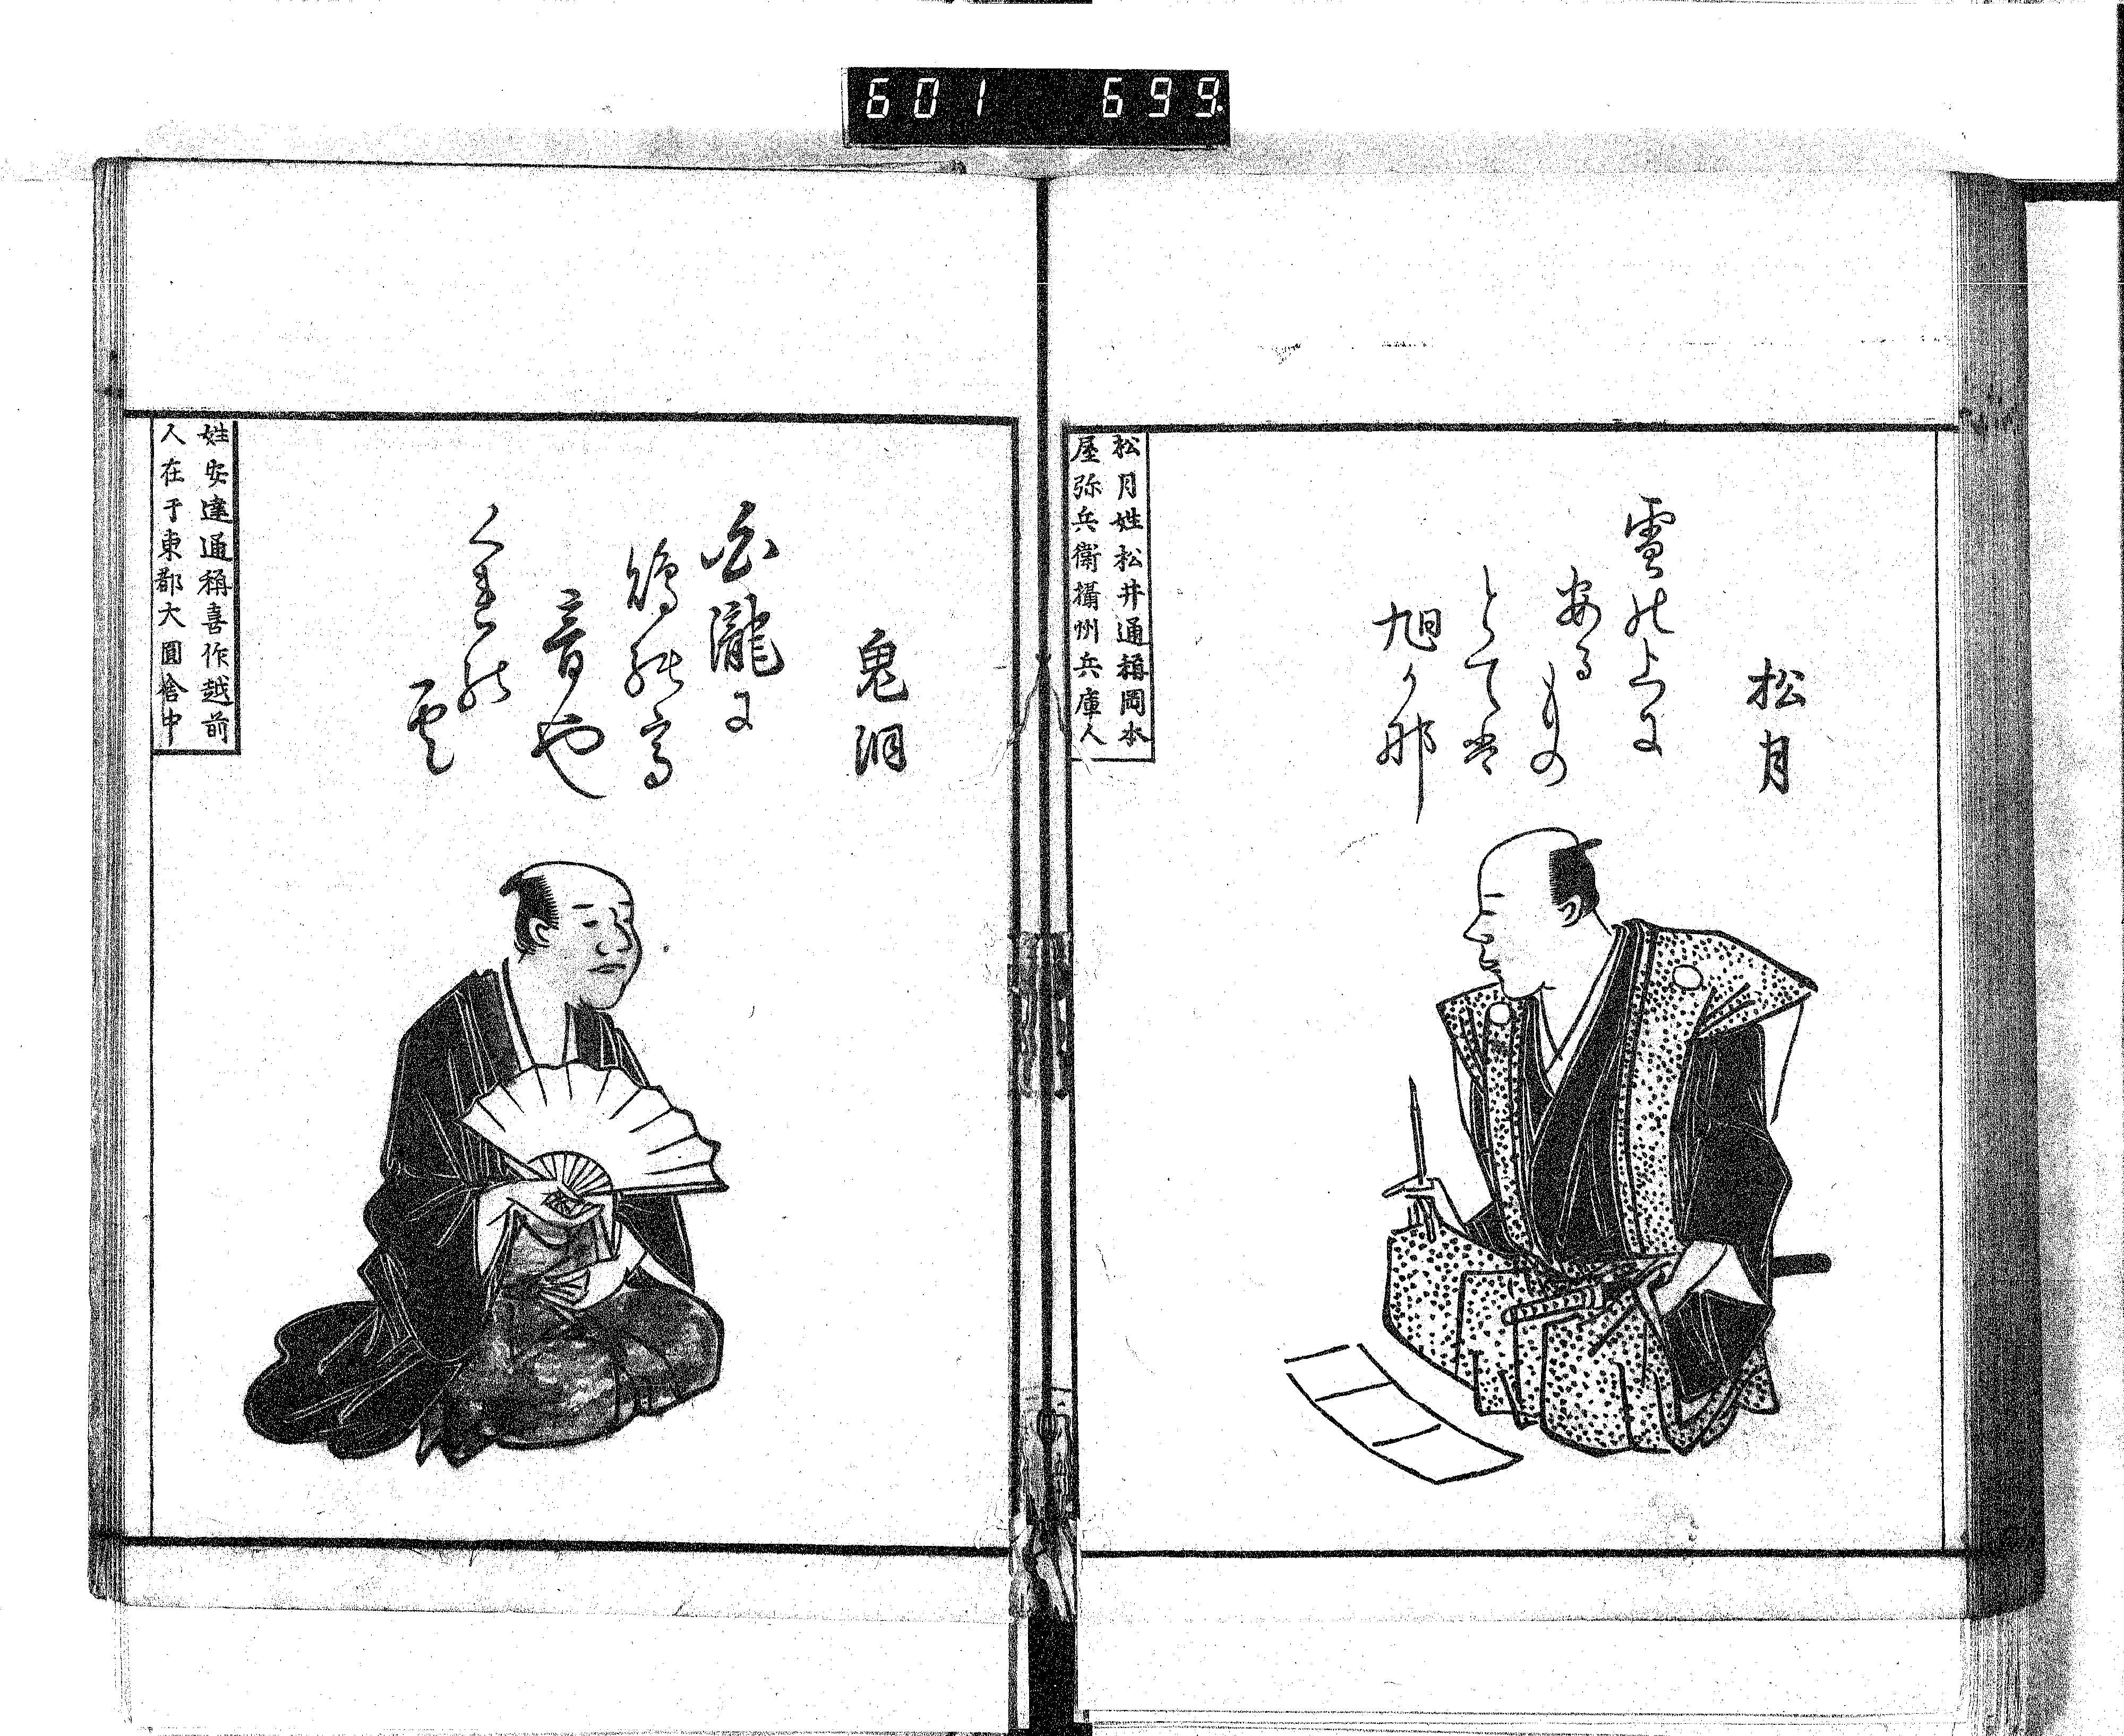 601 699.
松月
雪の上に
安る もの
とては
旭か那
松月姓松井通稱岡本
屋弥兵衛攝州兵庫人
鬼洞
瀧に
の高
音や
くれの
雲
姓安達通稱喜作越前
人在于東都大圓舎中